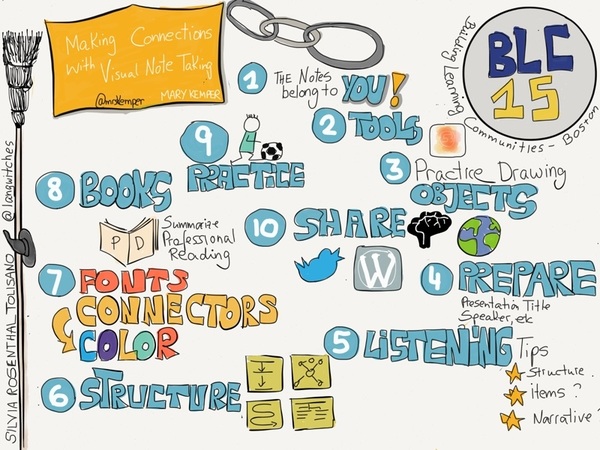 Making Connections
with Visual Note Taking
@mckemper
MARY KEMPER
BLC
15
Building Learning Communities - Boston
1 THE Notes
belong to YOU!
2 TOOLS
3 Practice Drawing
OBJECTS
4 PREPARE
Presentation Title
Speaker, etc
5 LISTENING Tips
Structure
Items ?
Narrative?
6 STRUCTURE
7 FONTS
CONNECTORS
COLOR
8 BOOKS
P D
Summarize
Professional
Reading
9
PRACTICE
10 SHARE
W
SILVIA ROSENTHAL TOLISANO @langwitches